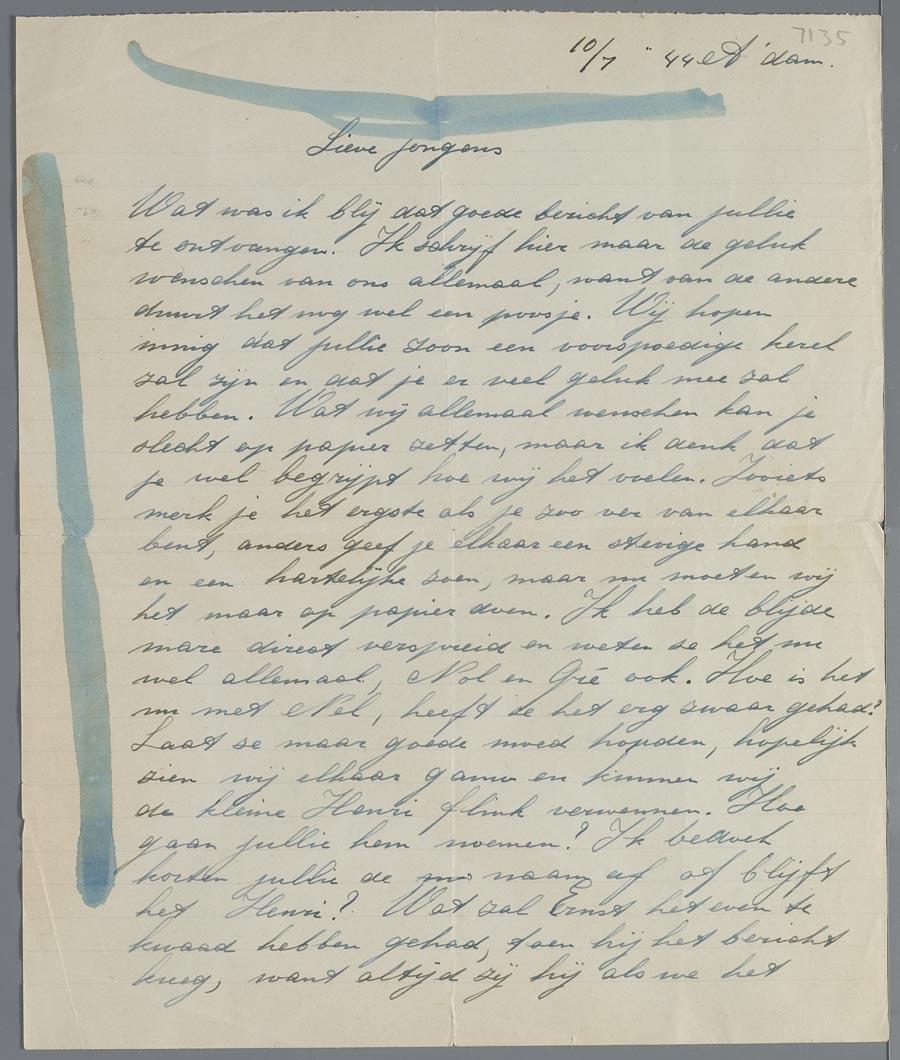 7135
10/7 " 44 A'dam.
Lieve jongens
Wat was ik blij dat goede bericht van jullie
te ontvangen. Ik schrijf hier maar de geluk
wenschen van ons allemaal, want van de andere
duurt het nog wel een poosje. Wij hopen
innig dat jullie zoon een voorspoedige kerel
zal zijn en dat je er veel geluk mee zal
hebben. Wat wij allemaal wenschen kan je
slecht op papier zetten, maar ik denk dat
je wel begrijpt hoe wij het voelen. Zooiets
merk je het ergste als je zoo ver van elkaar
bent, anders geef je elkaar een stevige hand
en een hartelijke zoen, maar nu moeten wij
het maar op papier doen. Ik heb de blijde
mare direct verspreid en weten ze het nu
wel allemaal, Nol en Gré ook. Hoe is het
nu met Nel, heeft ze het erg zwaar gehad?
Laat ze maar goede moed houden, hopelijk
zien wij elkaar gauw en kunnen wij
de kleine Henri flink verwennen. Hoe
gaan jullie hem noemen? Ik bedoel
korten jullie de naam af of blijft
het Henri? Wat zal Ernst het even te
kwaad hebben gehad, toen hij het bericht
kreeg, want altijd zij hij als we het